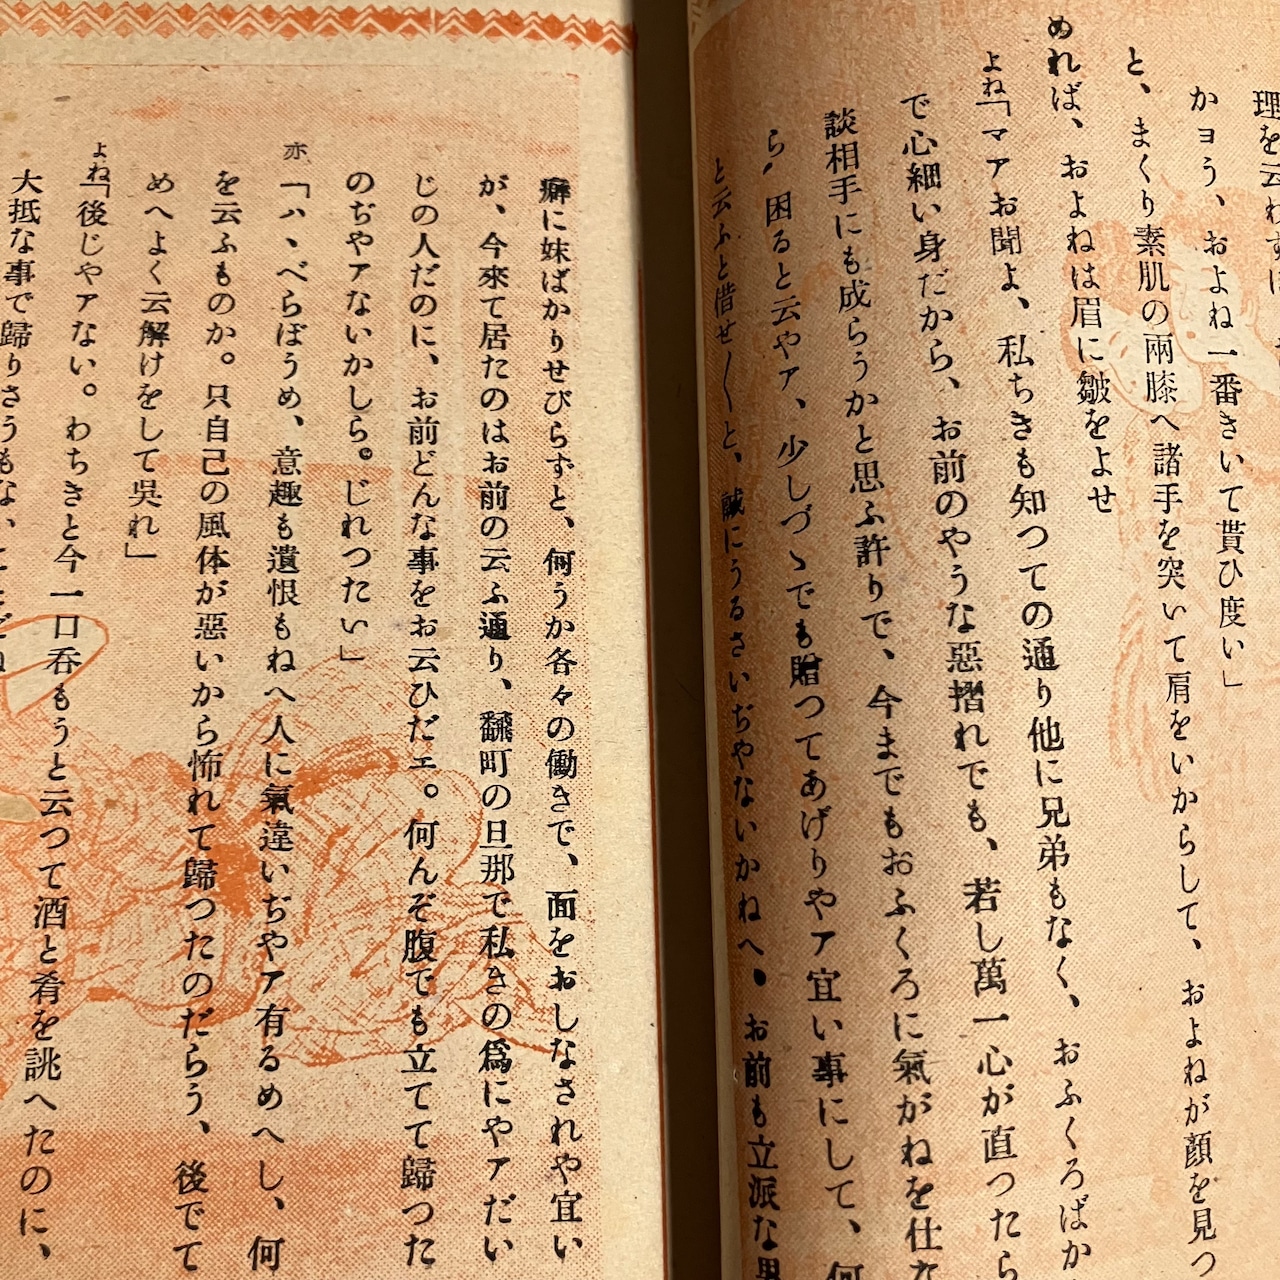 理を云わず
かヨう、およね一番きいて貰ひ度い」
と、まくり素肌の兩膝へ諸手を突いて肩をいからして、およねが顔を見つ
めれば、およねは眉に皺をよせ
よね「マアお聞よ、私ちきも知つての通り他に兄弟もなく、おふくろばか
で心細い身だから、お前のやうな惡摺れでも、若し萬一心が直つたら
談相手にも成らうかと思ふ許りで、今までもおふくろに氣がねを仕
ら、困ると云やア、少しづゝでも贈つてあげりやア宜い事にして、何
と云ふと借せ〱と、誠にうるさいぢやないかねへ。お前も立派な男
癖に妹ばかりせびらずと、何うか各々の働きで、面をおしなされや宜い
が、今來て居たのはお前の云ふ通り、飜町の旦那で私きの爲にやアだい
じの人だのに、お前どんな事をお云ひだエ。何んぞ腹でも立てて歸つた
のぢやアないかしら。じれつたい」
亦「ハヽべらぼうめ、意趣も遺恨もねへ人に氣違いぢやア有るめへし、何
を云ふものか。只自己の風体が惡いから怖れて歸つたのだらう、後でて
めへよく云解けをして呉れ」
よね「後じやアない。わちきと今一口呑もうと云つて酒と肴を誂へたのに、
大抵な事で歸りさうもない